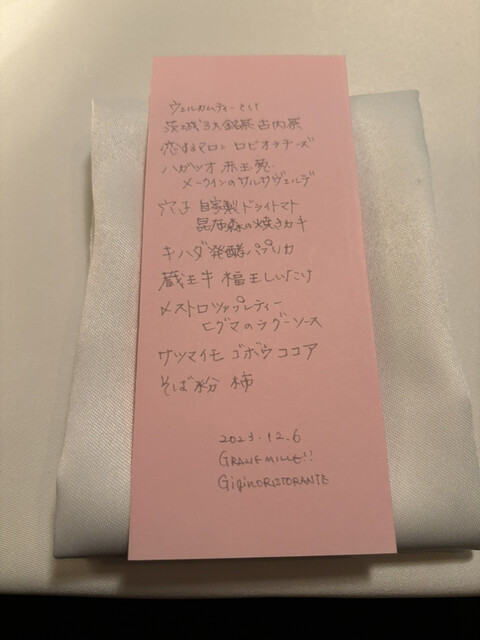 ウェルカムティーとして
茨城3大銘茶古内茶
恋するマロン ロビオラチーズ
ハガツオ 赤玉葱
メークインのサルサヴェルデ
穴子 自家製ドライトマト
昆布森の焼きカキ
キハダ発酵パプリカ
蔵王牛 福王しいたけ
メストロッツァプレティー
ヒグマのラグーソース
サツマイモ ゴボウ ココア
そば粉 柿
2023.12.6
GRAZIE MILLE!!
RISTORANTE